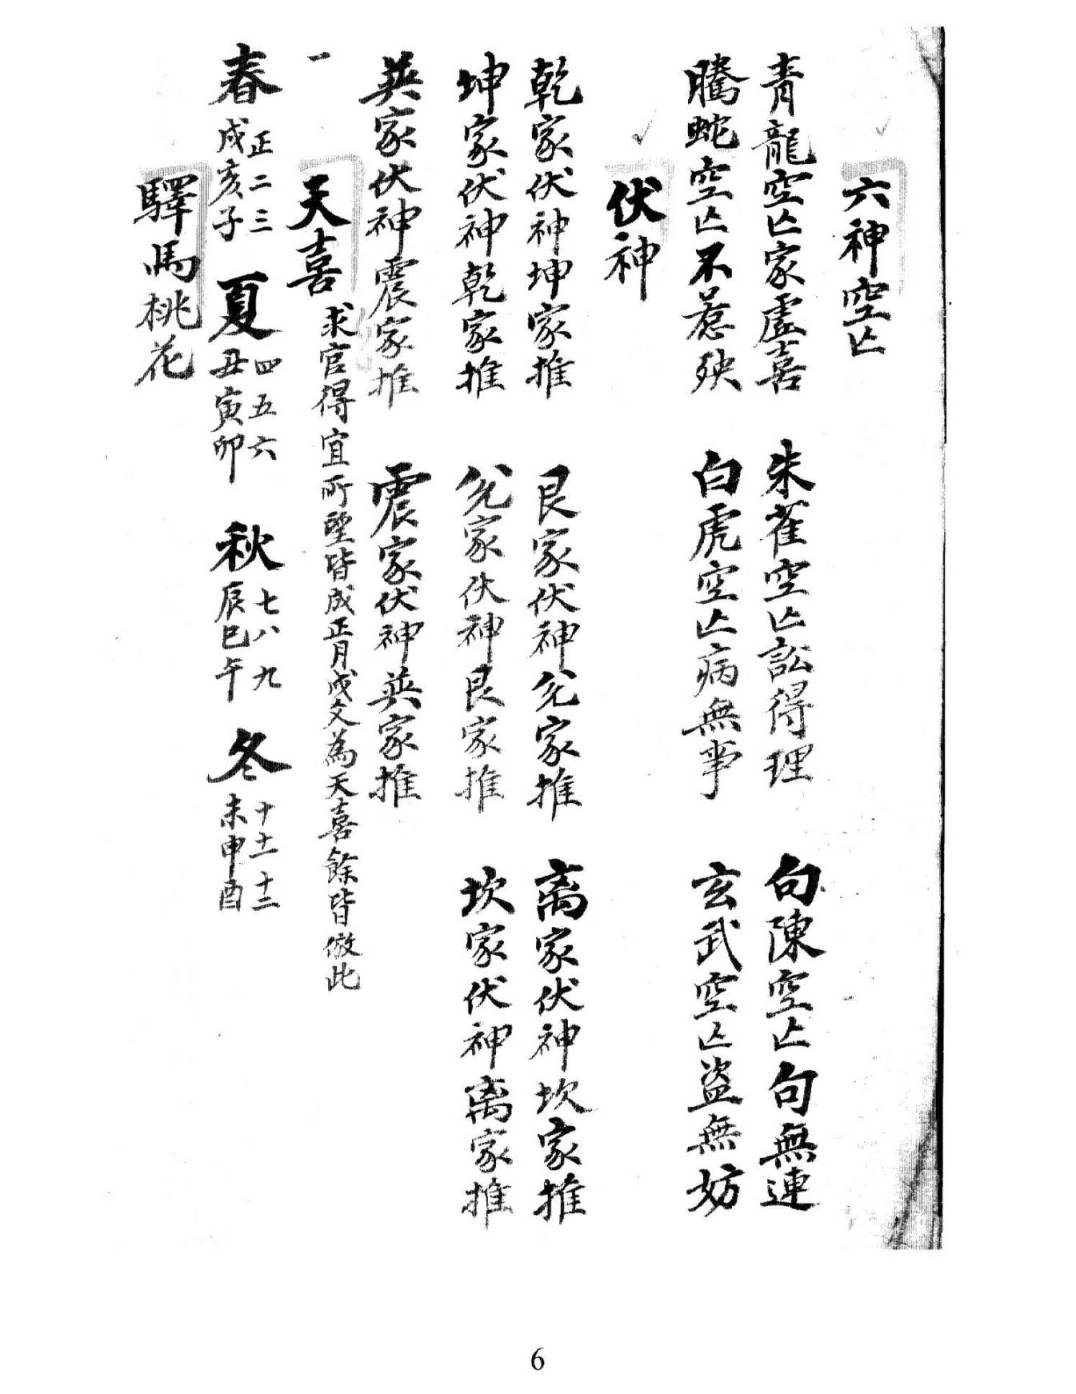 六神空亡
青龍空亡家虛喜 朱雀空亡訟得理 句陳空亡句無連
騰蛇空亡不惹殃 白虎空亡病無事 玄武空亡盜無妨
伏神
乾家伏神坤家推 艮家伏神兌家推 离家伏神坎家推
坤家伏神乾家推 兌家伏神艮家推 坎家伏神离家推
巽家伏神震家推 震家伏神巽家推
一
天喜 求官得宜所望皆成正月戌爻為天喜餘皆倣此
春 正二三 戌亥子 夏 四五六 丑寅卯 秋 七八九 辰巳午 冬 十十一十二 未申酉
驛馬桃花
6